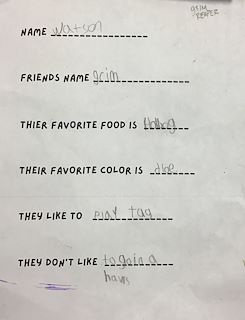 grim
REAPER
NAME Watson
FRIENDS NAME grim
THIER FAVORITE FOOD IS
THEIR FAVORITE COLOR IS
THEY LIKE TO Play tag
THEY DON'T LIKE to go in a